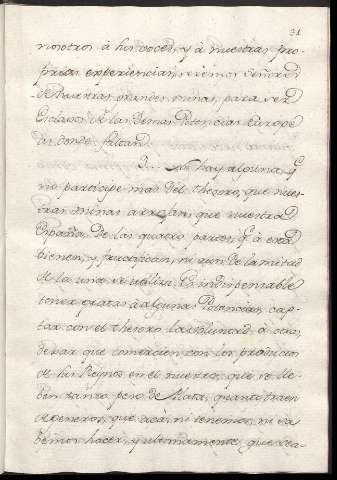 31
nosotros á his voces, y á nuestras pro-
prias experiencias, seremos Señores
de nuestras grandes minas, para ser
Esclavos de las demas Potencias Europe
as donde faltan.
3. No hay alguna, q.
no participe mas del thesoro, que nues-
tras minas arrojan, que nuestra
España. De las quatro partes, q. á esta
vienen, y fructifican, ni aun de la mitad
de la una se utiliza. Es indispensable
tener gratas á algunas Potencias, cap-
tar con el thesoro la voluntad á otras,
dexar que comercien con los productos
de sus Reynos en el nuestro, que se lle-
ben tanto peso de Plata, quanto traen
de generos, que acá, ni tenemos, ni sa-
bemos hacer, y ultimamente, que sea-